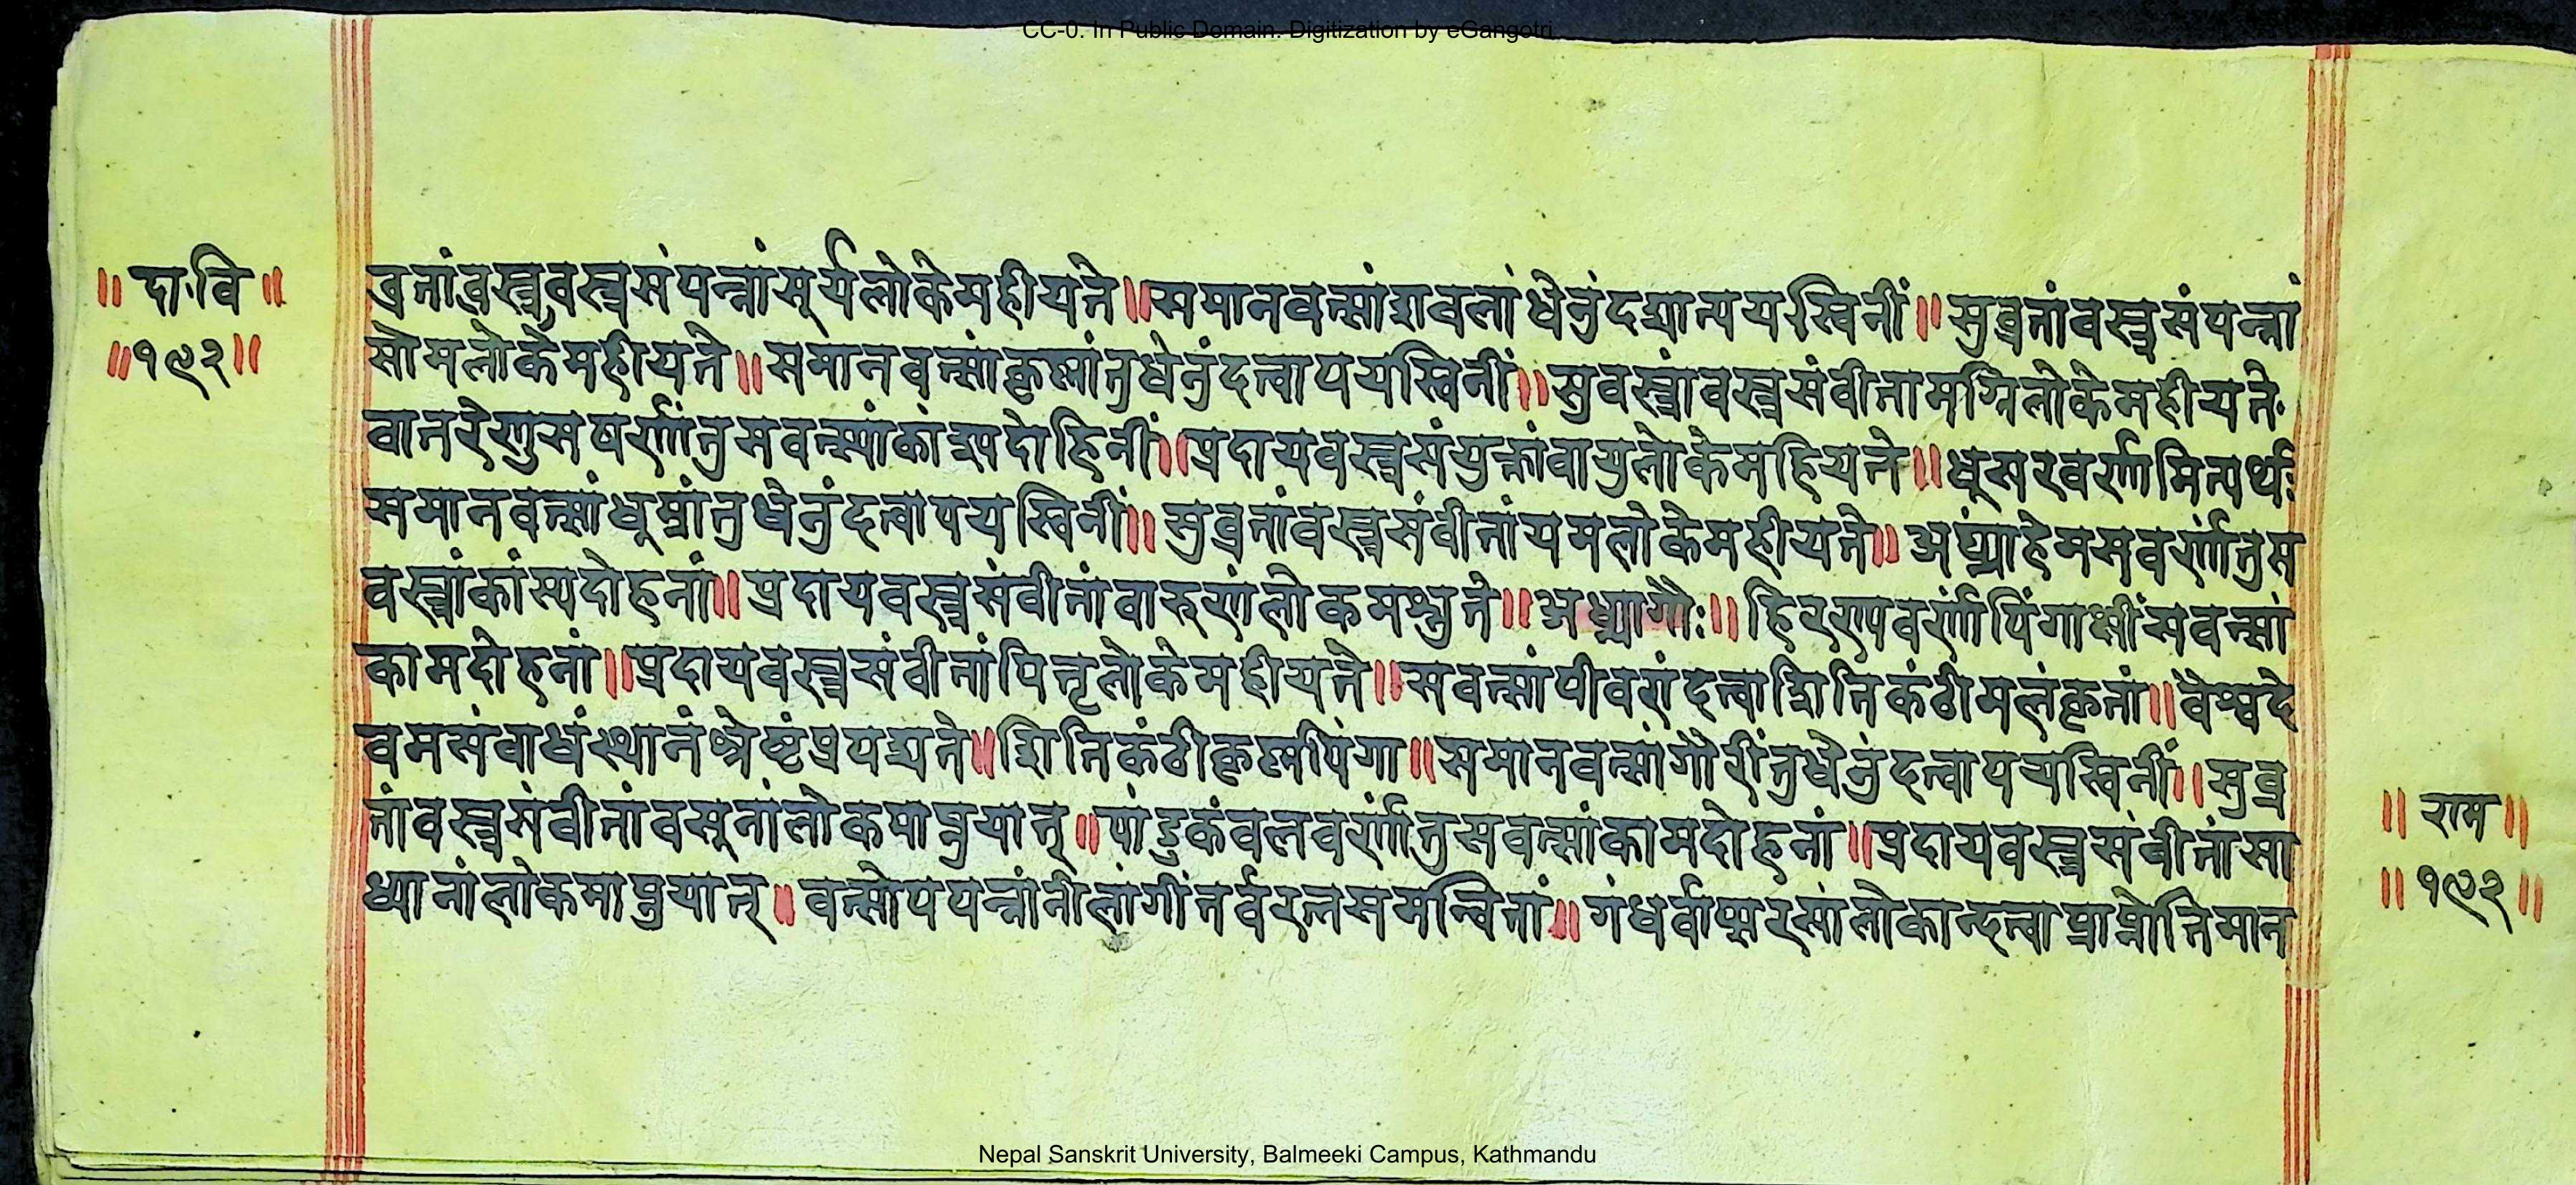 CC-0. In Public Domain. Digitization by eGangotri
॥ दा॰वि ॥
॥१९२॥
व्रतांव्रस्त्रवस्त्रसंपन्नांसूर्यलोकेमहीयते॥समानवत्सांशवलांधेनुंदद्यात्पयस्विनीं॥सुव्रतांवस्त्रसंपन्नां
सोमलोकेमहीयते॥समानवत्सांकृष्णांतुधेनुंदत्वापयस्विनीं॥सुवस्त्रांवस्त्रसंवीतामग्निलोकेमहीयते॰
वातरेणुसषर्णांतुसवत्स्यांकांस्पदोहिनीं॥प्रदायवस्त्रसंयुक्तांवायुलोकेमहियते॥धूसरवर्णामित्पर्थः
समानवत्सांधूम्रांतुधेनुंदत्वापयस्विनीं॥सुव्रतांवस्त्रसंवीतांयमलोकेमहीयते॥अंप्प्राहेमसवर्णांतुस
वस्त्रांकांस्यदोहनां॥प्रदायवस्त्रसंवीतांवारुणंलोकमश्नुते॥अध्प्रागौः॥हिरण्पवर्णांपिंगाक्षींसवत्सां
कामदोहनां॥प्रदायवस्त्रसंवीतांपितृलोकेमहीयते॥सवत्सांपीवरांदत्वाशितिकंठीमलंकृतां॥वैश्वदे
वमसंवाधंस्थानंश्रेष्टंप्रयद्यते॥शितिकंठीकृष्णपिंगा॥समानवत्सांगौरींतुधेनुंदत्वापयस्विनीं॥सुव्र
तांवस्त्रसंवीतांवसूनांलोकमाप्नुयात्॥पांडुकंवलवर्णांतुसवत्सांकामदोहनां॥प्रदायवस्त्रसंवीतांसा
ध्यानांलोकमाप्नुयात्॥वत्सोपयन्नांनीलांगींतर्वरत्नसमन्वितां॥गंधर्वाप्सरसांलोकान्दत्वाप्राप्नोतिमान
॥ राम॥
॥१९२॥
Nepal Sanskrit University, Balmeeki Campus, Kathmandu